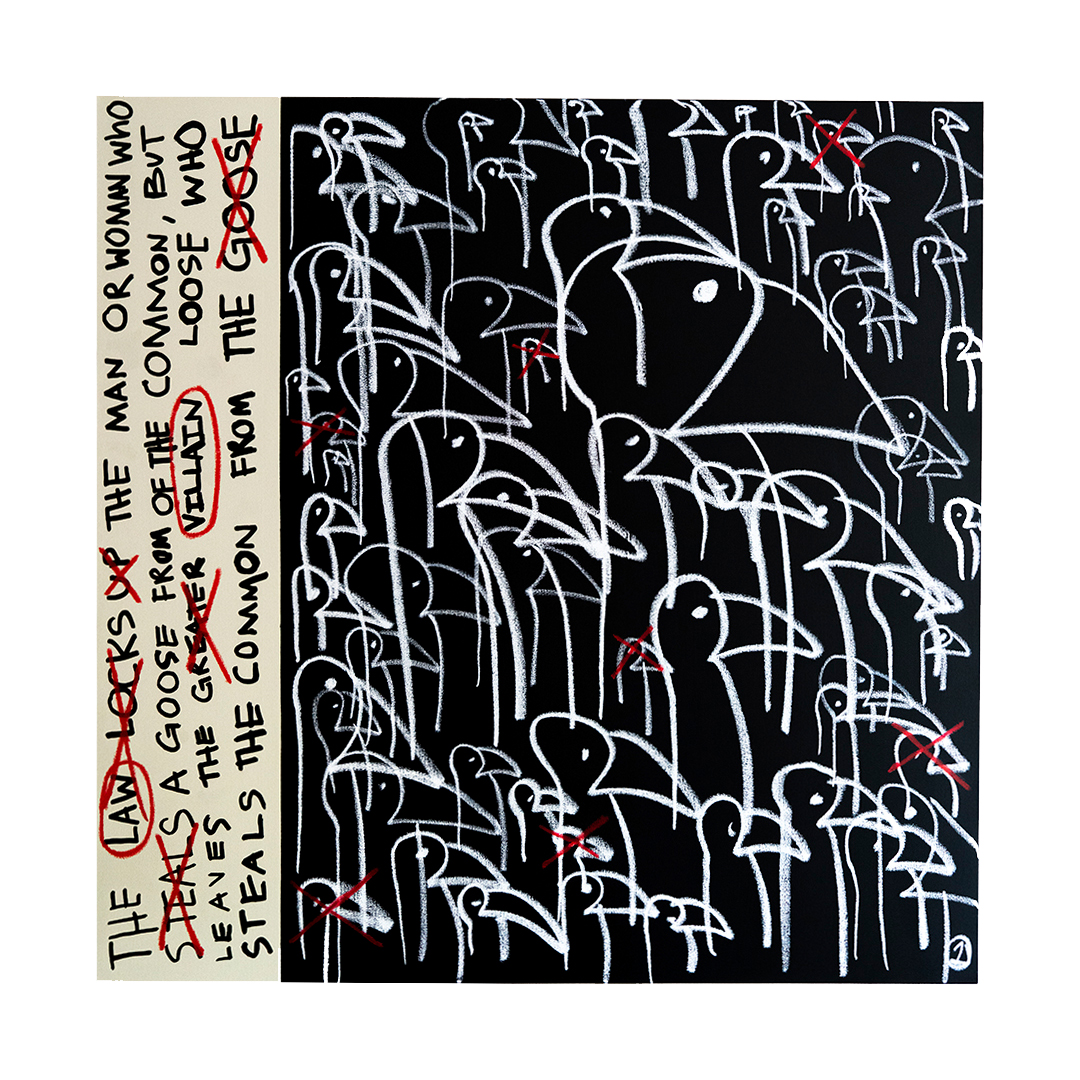 THE LAW LOCKS UP THE MAN OR WOMAN WHO
STEALS A GOOSE FROM OF THE COMMON, BUT
LEAVES THE GREATER VILLAIN LOOSE WHO
STEALS THE COMMON FROM THE GOOSE